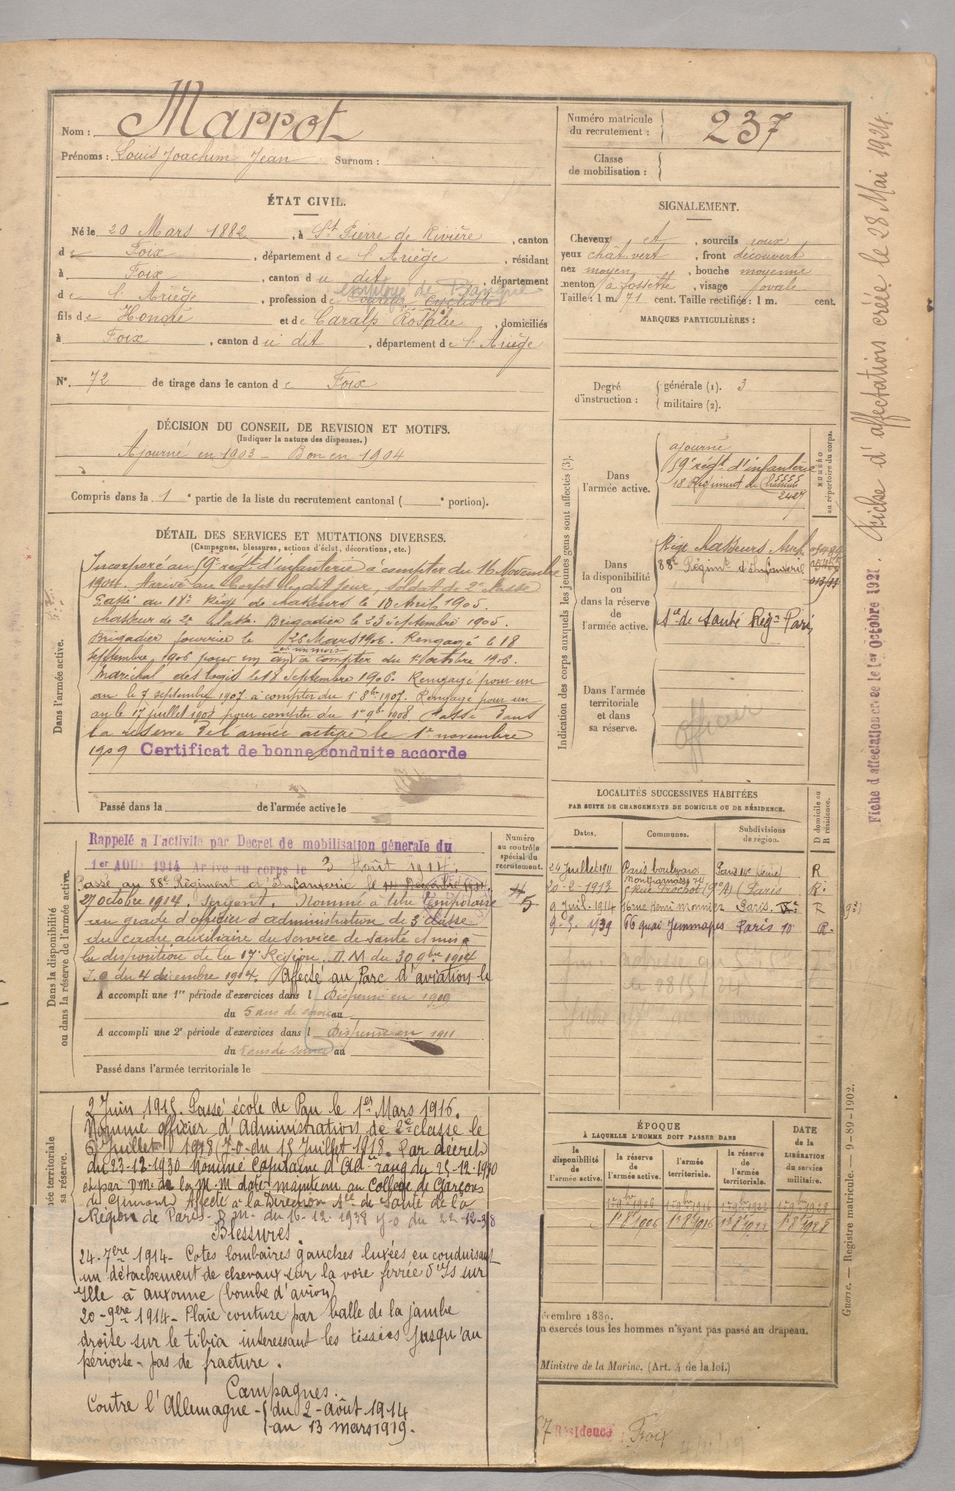 Nom : Marrot
Prénoms : Louis Joachim Jean Surnom :
Numéro matricule du recrutement : 237
Classe de mobilisation :
ÉTAT CIVIL.
Né le 20 Mars 1882, à St Pierre de Rivière, canton
de Foix, département de l'Ariège, résidant
à Foix, canton du dit, département
de l'Ariège, profession de employé de Banque
fils de Honoré et de Caralp Rosalie, domiciliés
à Foix, canton du dit, département de l'Ariège
N° 72 de tirage dans le canton de Foix
SIGNALEMENT.
Cheveux et, sourcils roux
yeux chât vert, front découvert
nez moyen, bouche moyenne
menton à fossette, visage ovale
Taille : 1 m. 71 cent. Taille rectifiée : 1 m. cent.
MARQUES PARTICULIÈRES :
Degré d'instruction : générale (1). 3
militaire (2).
DÉCISION DU CONSEIL DE REVISION ET MOTIFS.
(Indiquer la nature des dispenses.)
Ajourné en 1903 - Bon en 1904
Compris dans la 1e partie de la liste du recrutement cantonal ( e portion).
DÉTAIL DES SERVICES ET MUTATIONS DIVERSES.
(Campagnes, blessures, actions d'éclat, décorations, etc.)
Dans l'armée active.
Incorporé au 59e régt d'infanterie à compter du 16 Novembre
1904. Arrivé au Corps le dit jour, soldat de 2e classe
Passé au 18e Régt de chasseurs le 10 Avril 1905.
chasseur de 2e classe. Brigadier le 23 Septembre 1905.
Brigadier fourrier le 26 Mars 1906. Rengagé le 18
septembre 1906 pour un an et un mois à compter du 1er octobre 1906.
Maréchal des logis le 18 Septembre 1906. Rengagé pour un
an le 7 septembre 1907 à compter du 1er 8bre 1907. Rengagé pour un
an le 17 juillet 1908 pour compter du 1er 9bre 1908. Passé dans
la réserve de l'armée active le 1er novembre
1909 Certificat de bonne conduite accordé
Passé dans la de l'armée active le
Indication des corps auxquels les jeunes gens sont affectés (3).
NUMÉRO au répertoire du corps.
Dans l'armée active.
ajourné
59e régt d'infanterie
18 Régiment de Chasseurs
2427
Dans la disponibilité ou dans la réserve de l'armée active.
88e Régimt d'Infanterie
Son de Santé Région Paris
Dans l'armée territoriale et dans sa réserve.
officier
LOCALITÉS SUCCESSIVES HABITÉES
PAR SUITE DE CHANGEMENTS DE DOMICILE OU DE RÉSIDENCE.
Dates. Communes. Subdivisions de région. D domicile ou R résidence.
24 Juillet 1911 Paris boulevard Montparnasse 74 R
20-2-1913 rue Crochot (9e A) Paris R
9 Juil. 1914 rue Henri Monnier Paris R
9-5-1939 66 quai Jemmapes Paris 10e R
Dans la disponibilité ou dans la réserve de l'armée active.
Numéro au contrôle spécial du recrutement.
Rappelé à l'activité par Décret de mobilisation générale du
1er AOUT 1914 Arrivé au corps le 3 Août 1914.
Passé au 88e Régiment d'Infanterie le
27 octobre 1914. Sergent. Nommé à titre temporaire
au grade d'officier d'administration de 3e classe
du cadre auxiliaire du service de santé et mis à
la disposition de la 17e Région. D.M du 30 9bre 1914
J.O du 4 décembre 1914. Affecté au Parc d'aviation le
A accompli une 1re période d'exercices dans l Dispensé en 1909
du 5 ans de service au
A accompli une 2e période d'exercices dans l Dispensé en 1911
du 5 ans de service au
Passé dans l'armée territoriale le
2 Juin 1915. Passé école de Pau le 1er Mars 1916.
Nommé officier d'Administration de 2e classe le
6 Juillet 1918 (J.O. du 15 Juillet 1918. Par décret
du 23-12-1930 Nommé Capitaine d'Ad. rang du 25-12-1930
au Collège de Garçons
de Gimont. Affecté à la Direction Sce de Santé de la
Région de Paris D.m. du 16-12-1938 J.O du 22-12-38
Blessures.
24-7bre 1914 - Cotes lombaires gauches luxées en conduisant
un détachement de chevaux sur la voie ferrée d'Is sur
Tille à Auxonne (bombe d'avion)
20-9bre 1914 - Plaie contuse par balle de la jambe
droite sur le tibia interessant les tissus jusqu'au
périoste - pas de fracture.
Campagnes.
Contre l'Allemagne - du 2 août 1914
au 13 mars 1919.
ÉPOQUE
À LAQUELLE L'HOMME DOIT PASSER DANS
la disponibilité de l'armée active.
la réserve de l'armée active.
l'armée territoriale.
la réserve de l'armée territoriale.
DATE de la LIBÉRATION du service militaire.
décembre 1889.
n exercés tous les hommes n'ayant pas passé au drapeau.
Ministre de la Marine. (Art. 4 de la loi.)
Résidence : Foix
Guerre. — Registre matricule. — 9-89-1902.
Fiche d'affectation créée le 1er Octobre 1921.
Fiche d'affectations créée le 28 Mai 1924.